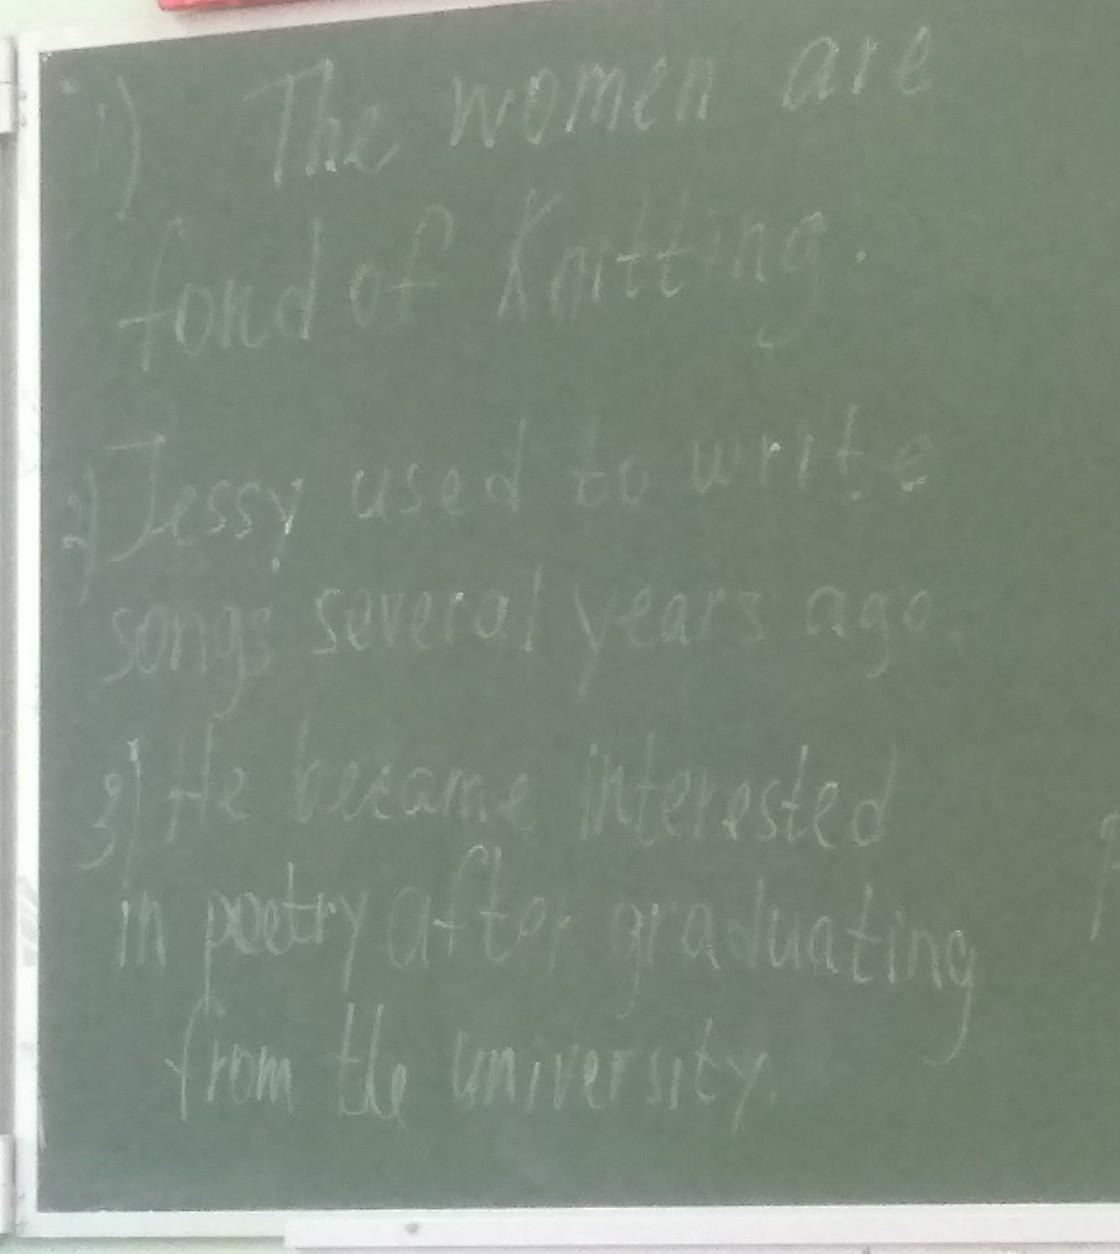 1) The women are
fond of Knitting.
2) Jessy used to write
songs several years ago.
3) He became interested
in poetry after graduating
from the university.